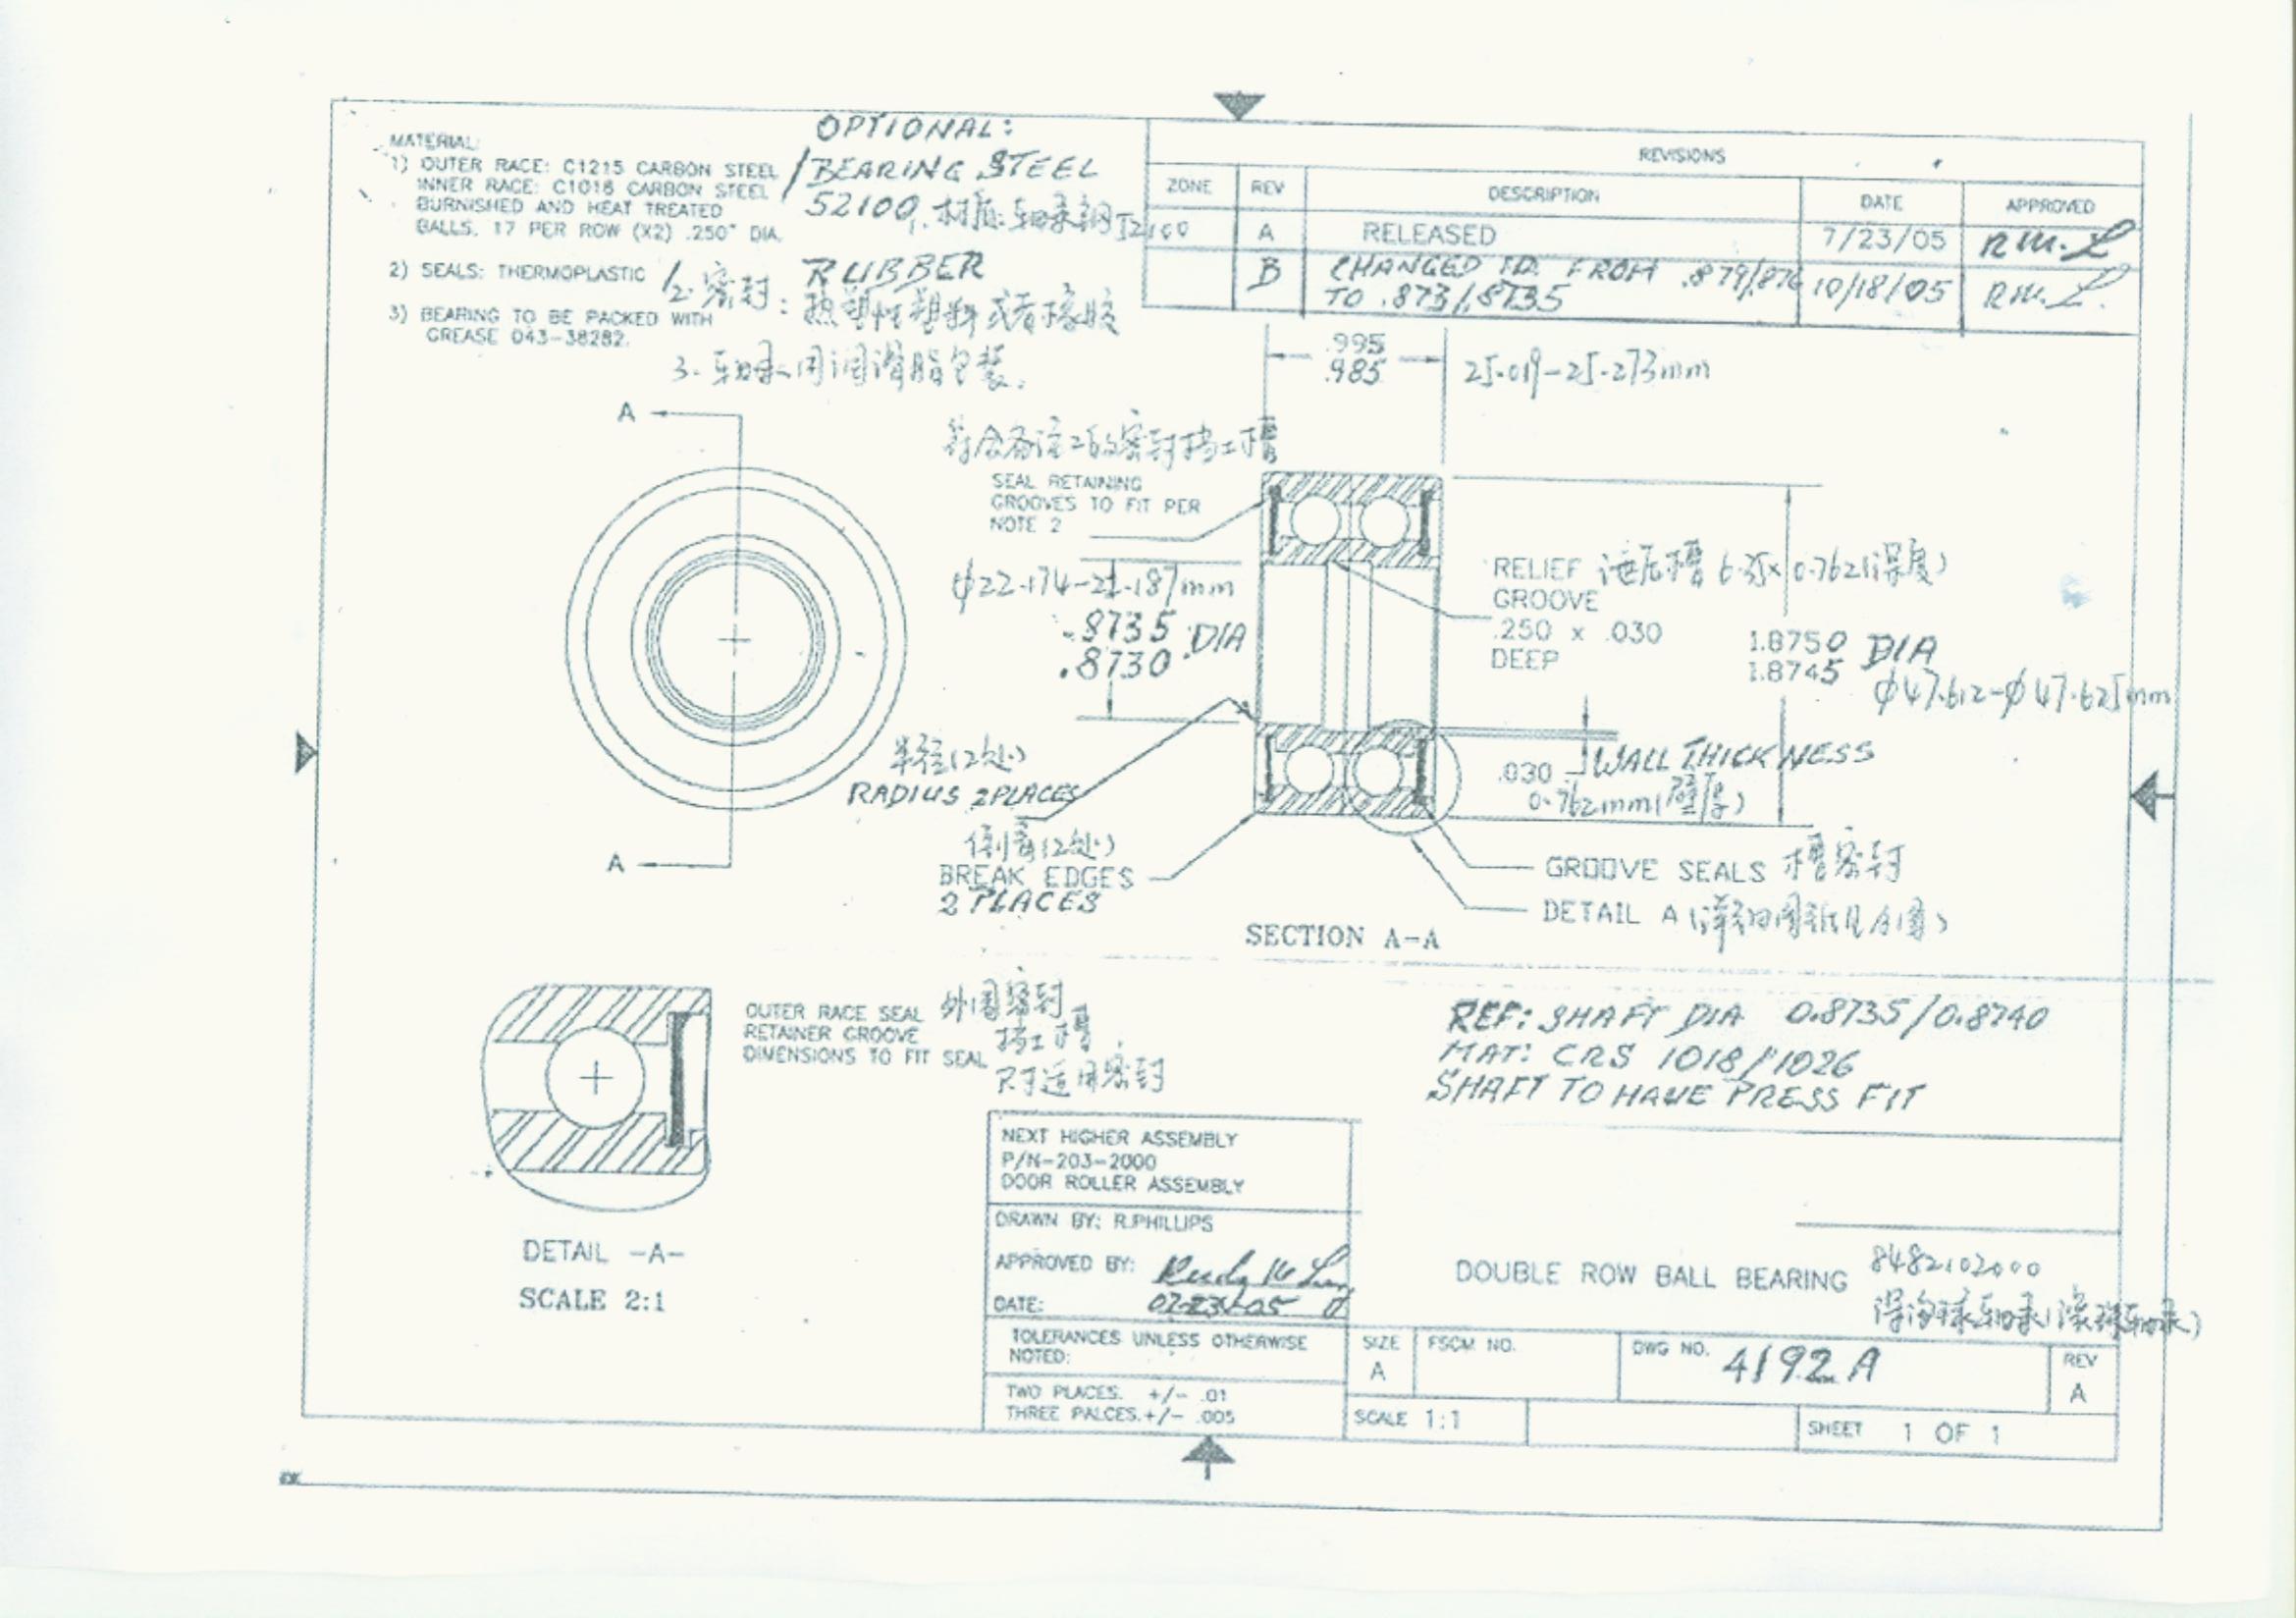 MATERIAL:
1) OUTER RACE: C1215 CARBON STEEL
INNER RACE: C1018 CARBON STEEL
BURNISHED AND HEAT TREATED
BALLS, 17 PER ROW (X2) .250" DIA.
2) SEALS: THERMOPLASTIC
3) BEARING TO BE PACKED WITH
GREASE 043-38282.
OPTIONAL:
/ BEARING STEEL
52100, 材质: 轴承钢 52100
/ RUBBER
2. 密封: 热塑性塑料或者橡胶
3. 轴承用润滑脂包装.
REVISIONS
ZONE REV DESCRIPTION DATE APPROVED
A RELEASED 7/23/05 R.M.L
B CHANGED I.D. FROM .879/.876 10/18/05 R.M.L.
TO .873/.8735
.995
.985
25.019-25.273mm
A
符合备注2的密封挡土槽
SEAL RETAINING
GROOVES TO FIT PER
NOTE 2
φ22.174-22.187mm
.8735 DIA
.8730
RELIEF 泄压槽 6.35x0.762(深度)
GROOVE
.250 x .030
DEEP
1.8750 DIA
1.8745
φ47.612-φ47.625mm
半径(2处)
RADIUS 2PLACES
.030 WALL THICKNESS
0.762mm(壁厚)
倒角(2处)
BREAK EDGES
2 PLACES
A
GROOVE SEALS 槽密封
DETAIL A
SECTION A-A
OUTER RACE SEAL
RETAINER GROOVE
DIMENSIONS TO FIT SEAL
外围密封
挡土槽
尺寸适用密封
REF: SHAFT DIA 0.8735/0.8740
MAT: CRS 1018/1026
SHAFT TO HAVE PRESS FIT
DETAIL -A-
SCALE 2:1
NEXT HIGHER ASSEMBLY
P/N-203-2000
DOOR ROLLER ASSEMBLY
DRAWN BY: R.PHILLIPS
APPROVED BY:
DATE: 07-23-05
TOLERANCES UNLESS OTHERWISE
NOTED:
TWO PLACES. +/- .01
THREE PALCES.+/- .005
DOUBLE ROW BALL BEARING
8482102000
深沟球轴承(滚珠轴承)
SIZE
A
FSCM NO.
DWG NO. 4192A
REV
A
SCALE 1:1
SHEET 1 OF 1